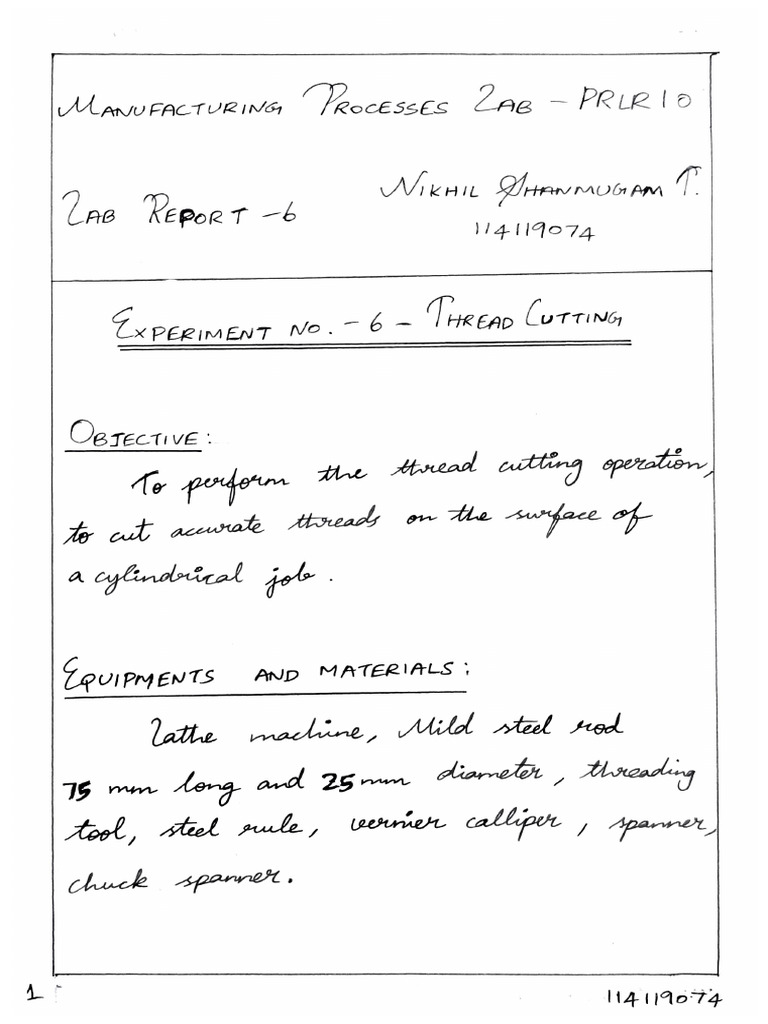 MANUFACTURING PROCESSES LAB - PRLR10
NIKHIL SHANMUGAM T.
LAB REPORT - 6
114119074
EXPERIMENT NO. - 6 - THREAD CUTTING
OBJECTIVE:
To perform the thread cutting operation,
to cut accurate threads on the surface of
a cylindrical job.
EQUIPMENTS AND MATERIALS:
Lathe machine, Mild steel rod
75 mm long and 25 mm diameter, threading
tool, steel rule, vernier calliper, spanner,
chuck spanner.
1
114119074